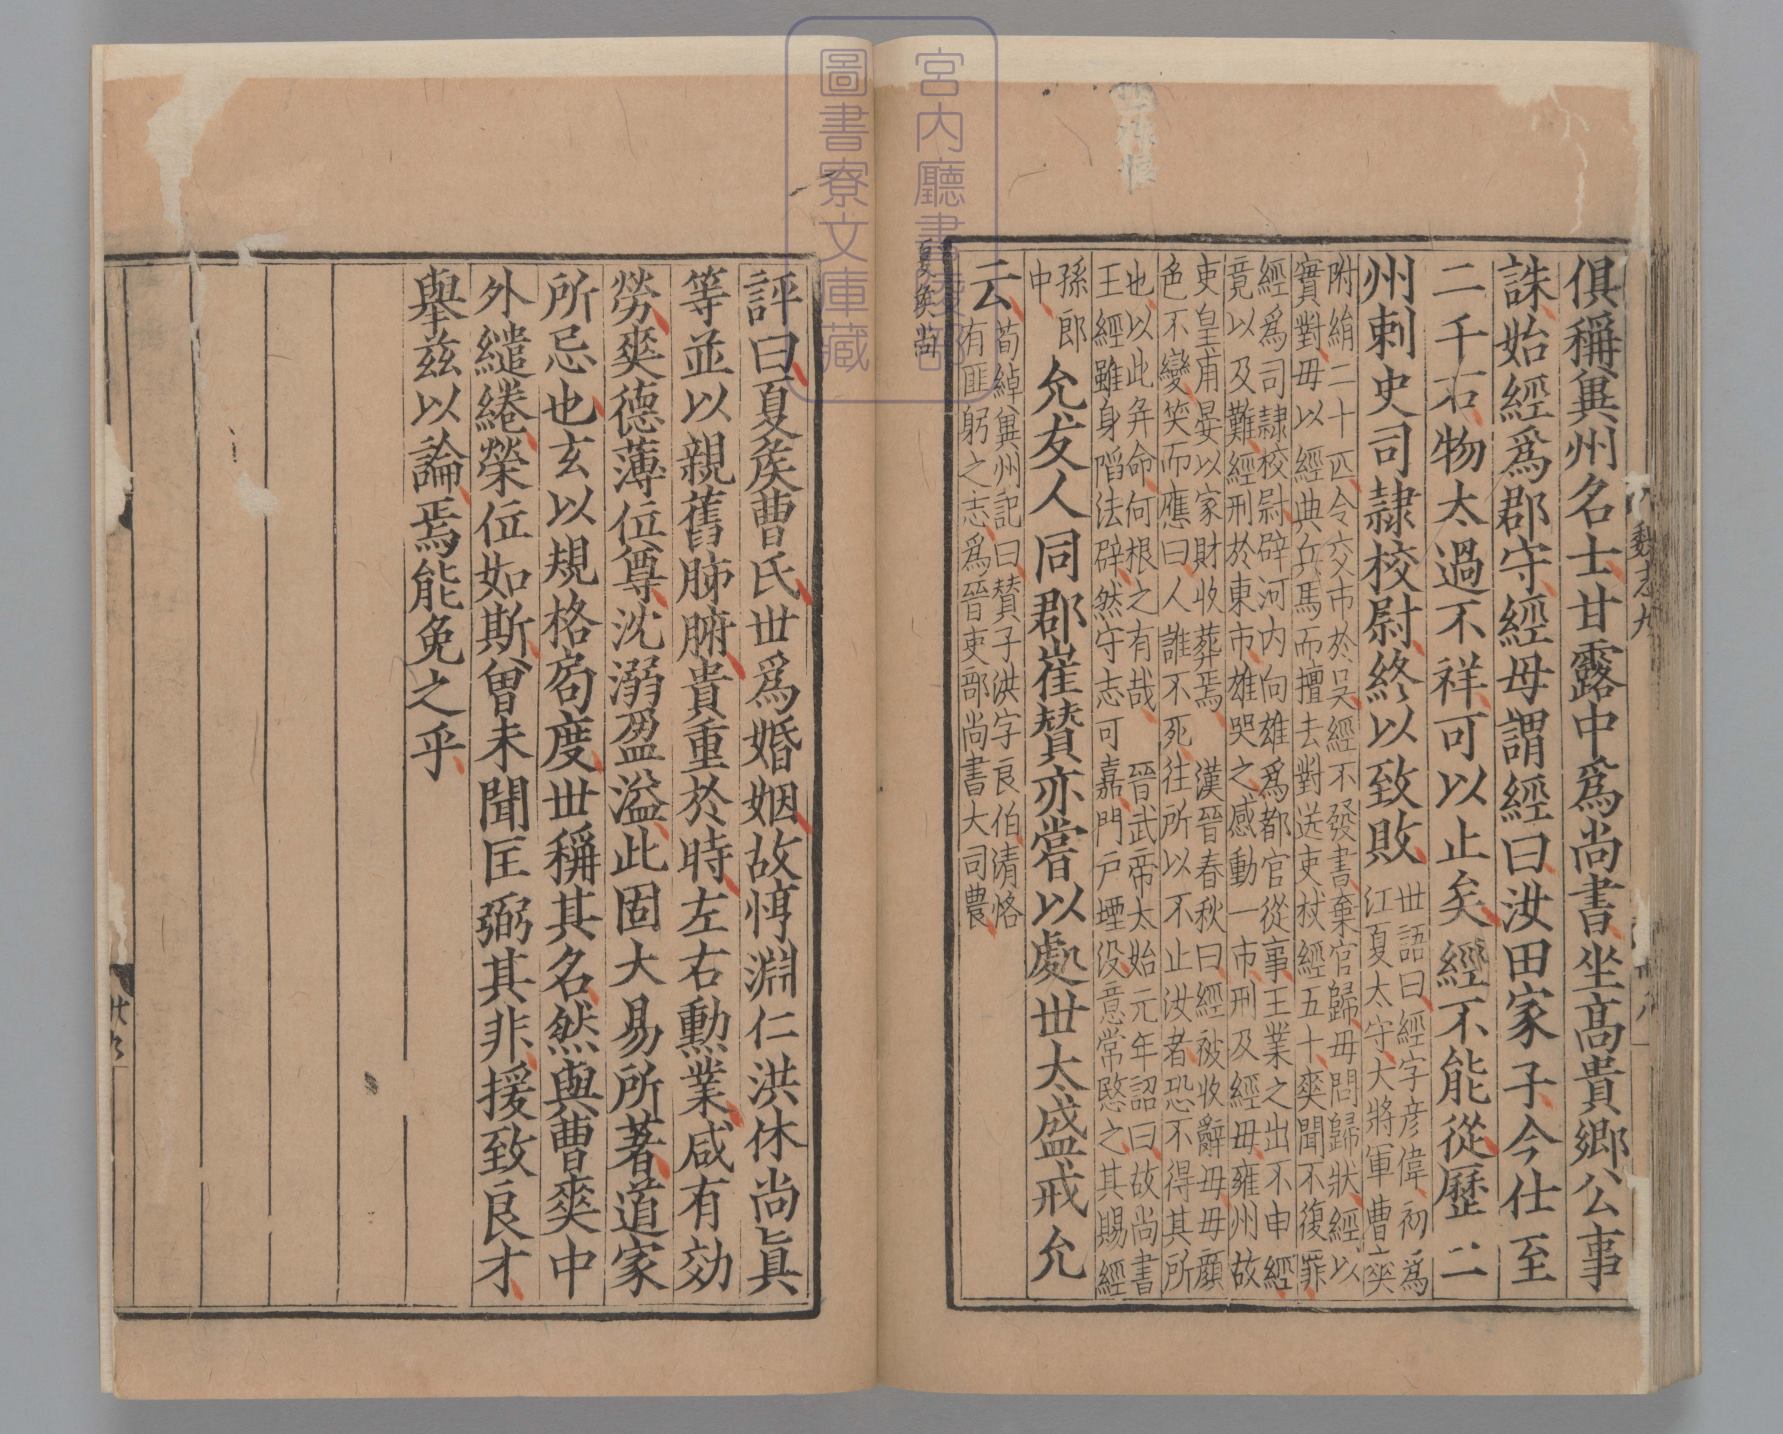 俱稱兾州名士甘露中爲尚書坐髙貴郷公事
誅始經爲郡守經母謂經曰汝田家子今仕至
二千石物太過不祥可以止矣經不能從歷二
州刺史司隷校尉終以致敗
世語曰經字彦偉初爲
江夏太守大將軍曹爽
附絹二十匹令交市於吳經不發書棄官歸母問歸狀經以
實對母以經典兵馬而擅去對送吏杖經五十爽聞不復罪
經爲司隷校尉辟河内向雄爲都官從事王業之出不申經
竟以及難經刑於東市雄哭之感動一市刑及經母雍州故
吏皇甫晏以家財收葬焉 漢晉春秋曰經被收辭母母顔
色不變笑而應曰人誰不死往所以不止汝者恐不得其所
也以此弁命何根之有哉 晉武帝太始元年詔曰故尚書
王經雖身陷法辟然守志可嘉門戸堙没意常愍之其賜經
孫郎
中
允友人同郡崔贊亦嘗以處世太盛戒允
云
荀綽兾州記曰贊子洪字良伯清恪
有匪躬之志爲晉吏部尚書大司農
夏矦尚
評曰夏矦曹氏世爲婚姻故惇淵仁洪休尚眞
等並以親舊肺腑貴重於時左右勳業咸有効
勞爽德薄位尊沈溺盈溢此固大易所著道家
所忌也玄以規格局度世稱其名然與曹爽中
外繾綣榮位如斯曾未聞匡弼其非援致良才
舉茲以論焉能免之乎
魏志九
宮内廳書陵部
圖書寮文庫藏